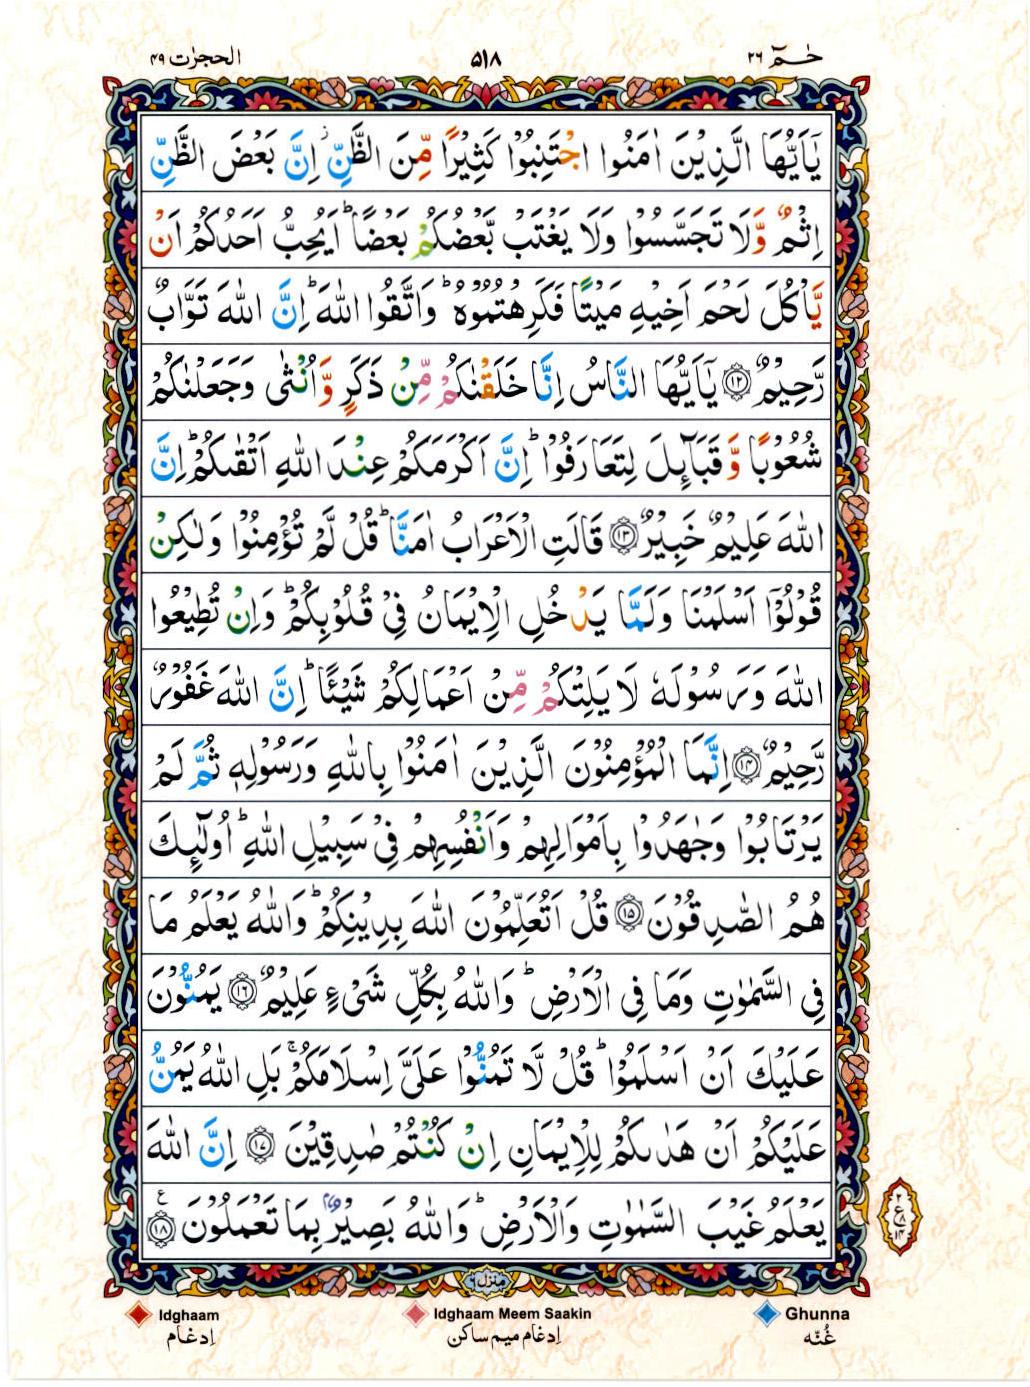 حٰمٓ ۲۶
۵۱۸
الحجرٰت ۴۹
يٰۤاَيُّهَا الَّذِيْنَ اٰمَنُوا اجْتَنِبُوْا كَثِيْرًا مِّنَ الظَّنِّ ز اِنَّ بَعْضَ الظَّنِّ
اِثْمٌ وَّلَا تَجَسَّسُوْا وَلَا يَغْتَبْ بَّعْضُكُمْ بَعْضًا ؕ اَيُحِبُّ اَحَدُكُمْ اَنْ
يَّاْكُلَ لَحْمَ اَخِيْهِ مَيْتًا فَكَرِهْتُمُوْهُ ؕ وَاتَّقُوا اللّٰهَ ؕ اِنَّ اللّٰهَ تَوَّابٌ
رَّحِيْمٌ ﴿۱۲﴾ يٰۤاَيُّهَا النَّاسُ اِنَّا خَلَقْنٰكُمْ مِّنْ ذَكَرٍ وَّاُنْثٰى وَجَعَلْنٰكُمْ
شُعُوْبًا وَّقَبَآئِلَ لِتَعَارَفُوْا ؕ اِنَّ اَكْرَمَكُمْ عِنْدَ اللّٰهِ اَتْقٰىكُمْ ؕ اِنَّ
اللّٰهَ عَلِيْمٌ خَبِيْرٌ ﴿۱۳﴾ قَالَتِ الْاَعْرَابُ اٰمَنَّا ؕ قُلْ لَّمْ تُؤْمِنُوْا وَلٰكِنْ
قُوْلُوْۤا اَسْلَمْنَا وَلَمَّا يَدْخُلِ الْاِيْمَانُ فِيْ قُلُوْبِكُمْ ؕ وَاِنْ تُطِيْعُوا
اللّٰهَ وَرَسُوْلَهٗ لَا يَلِتْكُمْ مِّنْ اَعْمَالِكُمْ شَيْـًٔا ؕ اِنَّ اللّٰهَ غَفُوْرٌ
رَّحِيْمٌ ﴿۱۴﴾ اِنَّمَا الْمُؤْمِنُوْنَ الَّذِيْنَ اٰمَنُوْا بِاللّٰهِ وَرَسُوْلِهٖ ثُمَّ لَمْ
يَرْتَابُوْا وَجٰهَدُوْا بِاَمْوَالِهِمْ وَاَنْفُسِهِمْ فِيْ سَبِيْلِ اللّٰهِ ؕ اُولٰٓئِكَ
هُمُ الصّٰدِقُوْنَ ﴿۱۵﴾ قُلْ اَتُعَلِّمُوْنَ اللّٰهَ بِدِيْنِكُمْ ؕ وَاللّٰهُ يَعْلَمُ مَا
فِي السَّمٰوٰتِ وَمَا فِي الْاَرْضِ ؕ وَاللّٰهُ بِكُلِّ شَيْءٍ عَلِيْمٌ ﴿۱۶﴾ يَمُنُّوْنَ
عَلَيْكَ اَنْ اَسْلَمُوْا ؕ قُلْ لَّا تَمُنُّوْا عَلَيَّ اِسْلَامَكُمْ ۚ بَلِ اللّٰهُ يَمُنُّ
عَلَيْكُمْ اَنْ هَدٰىكُمْ لِلْاِيْمَانِ اِنْ كُنْتُمْ صٰدِقِيْنَ ﴿۱۷﴾ اِنَّ اللّٰهَ
يَعْلَمُ غَيْبَ السَّمٰوٰتِ وَالْاَرْضِ ؕ وَاللّٰهُ بَصِيْرٌۢ بِمَا تَعْمَلُوْنَ ﴿۱۸﴾ ع
۲
ع ۸
۱۴
منزل ٦
Idghaam
Idghaam Meem Saakin
Ghunna
اِدغام
اِدغام ميم ساكن
غُنّه